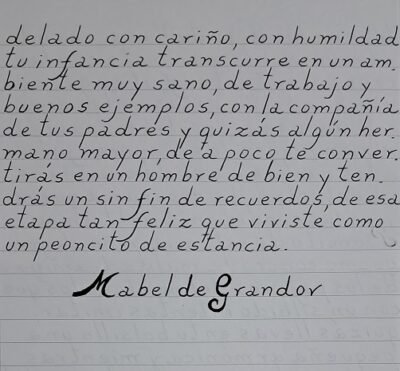 delado con cariño, con humildad
tu infancia transcurre en un am.
biente muy sano, de trabajo y
buenos ejemplos, con la compañía
de tus padres y quizás algún her.
mano mayor, de a poco te conver.
tirás en un hombre de bien y ten.
drás un sin fin de recuerdos, de esa
etapa tan feliz que viviste como
un peoncito de estancia.
Mabel de Grandov